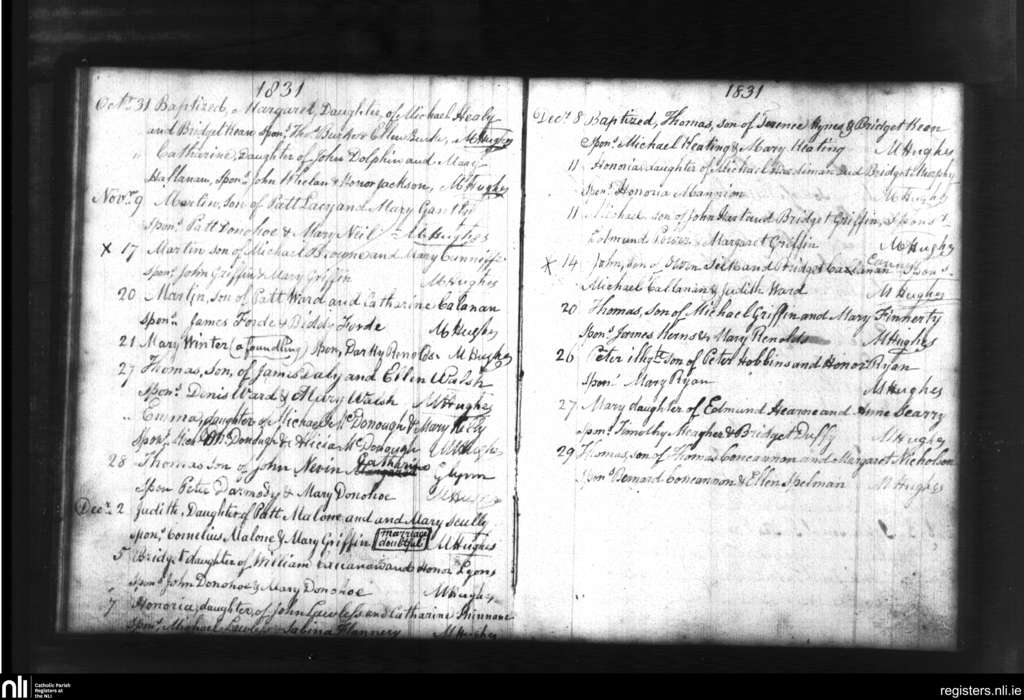 1831
Octr. 31 Baptized, Margaret, Daughter, of Michael Healy
and Bridget Kean Sponrs. Thos. Burke & Ellen Burke, M Hughes
" Catharine, Daughter of John Dolphin and Mary
Hallanan, Sponrs. John Whelan & Honor Jackson, M Hughes
Novr. 9 Martin, Son of Patt Lacy and Mary Gantly
Sponrs. Patt Donohoe & Mary Neil M Hughes
X 17 Martin son of Michael Browne and Mary Cunniffe
Sponrs. John Griffin & Mary Griffin M Hughes
20 Martin, Son of Patt Ward and Catharine Calanan
Sponrs. James Forde & Biddy Forde M Hughes
21 Mary Winter (a foundling) Spon, Dartty M Hughes
27 Thomas, Son, of James Daly and Ellen Walsh
Sponrs. Denis Ward & Mary Walsh M Hughes
" Emma, daughter of Michael McDonough & Mary Kelly
Sponrs. Mich McDonough & Alicia McDonough M Hughes
28 Thomas son of John Nevin Catharine Glynn
Spon Peter Darmody & Mary Donohoe M Hughes
Decr. 2 Judith, Daughter of Patt Malone and and Mary Scully
Sponrs. Cornelius Malone & Mary Griffin marriage doubtful M Hughes
5 Bridget daughter of William and Honor Lyons
Sponrs. John Donohoe & Mary Donohoe M Hughes
" 7 Honoria, daughter, of John Lawless and Catharine Shinnane
Sponrs. Michael Lawless Sabina Flannery M Hughes
1831
Decr. 8 Baptized, Thomas, son of Terence Hynes & Bridget Keon
Sponrs. Michael Keating & Mary Keating M Hughes
11 Honoria daughter of Michael and Bridget Murphy
Sponr. Honoria Mannion M Hughes
11 Michael son of John Hart and Bridget Griffin, Sponrs.
Edmund Power & Margaret Griffin M Hughes
X 14 John, son of Owen Silk and Bridget Sponrs.
Michael Callanan & Judith Ward M Hughes
20 Thomas, son of Michael Griffin and Mary Finnerty
Sponrs. James Kerns & Mary Renolds M Hughes
26 Peter illegte. son of Peter Hobbins and Honor Ryan
Sponr. Mary Ryan M Hughes
27 Mary daughter of Edmund Hearne and Anne Searry
Sponrs. Timothy Meagher & Bridget Duffy M Hughes
29 Thomas, son of Thomas Concannon and Margaret Nicholson
Sponrs. Bernard Concannon & Ellen Spelman M Hughes
nli Catholic Parish
Registers at
the NLI
registers.nli.ie